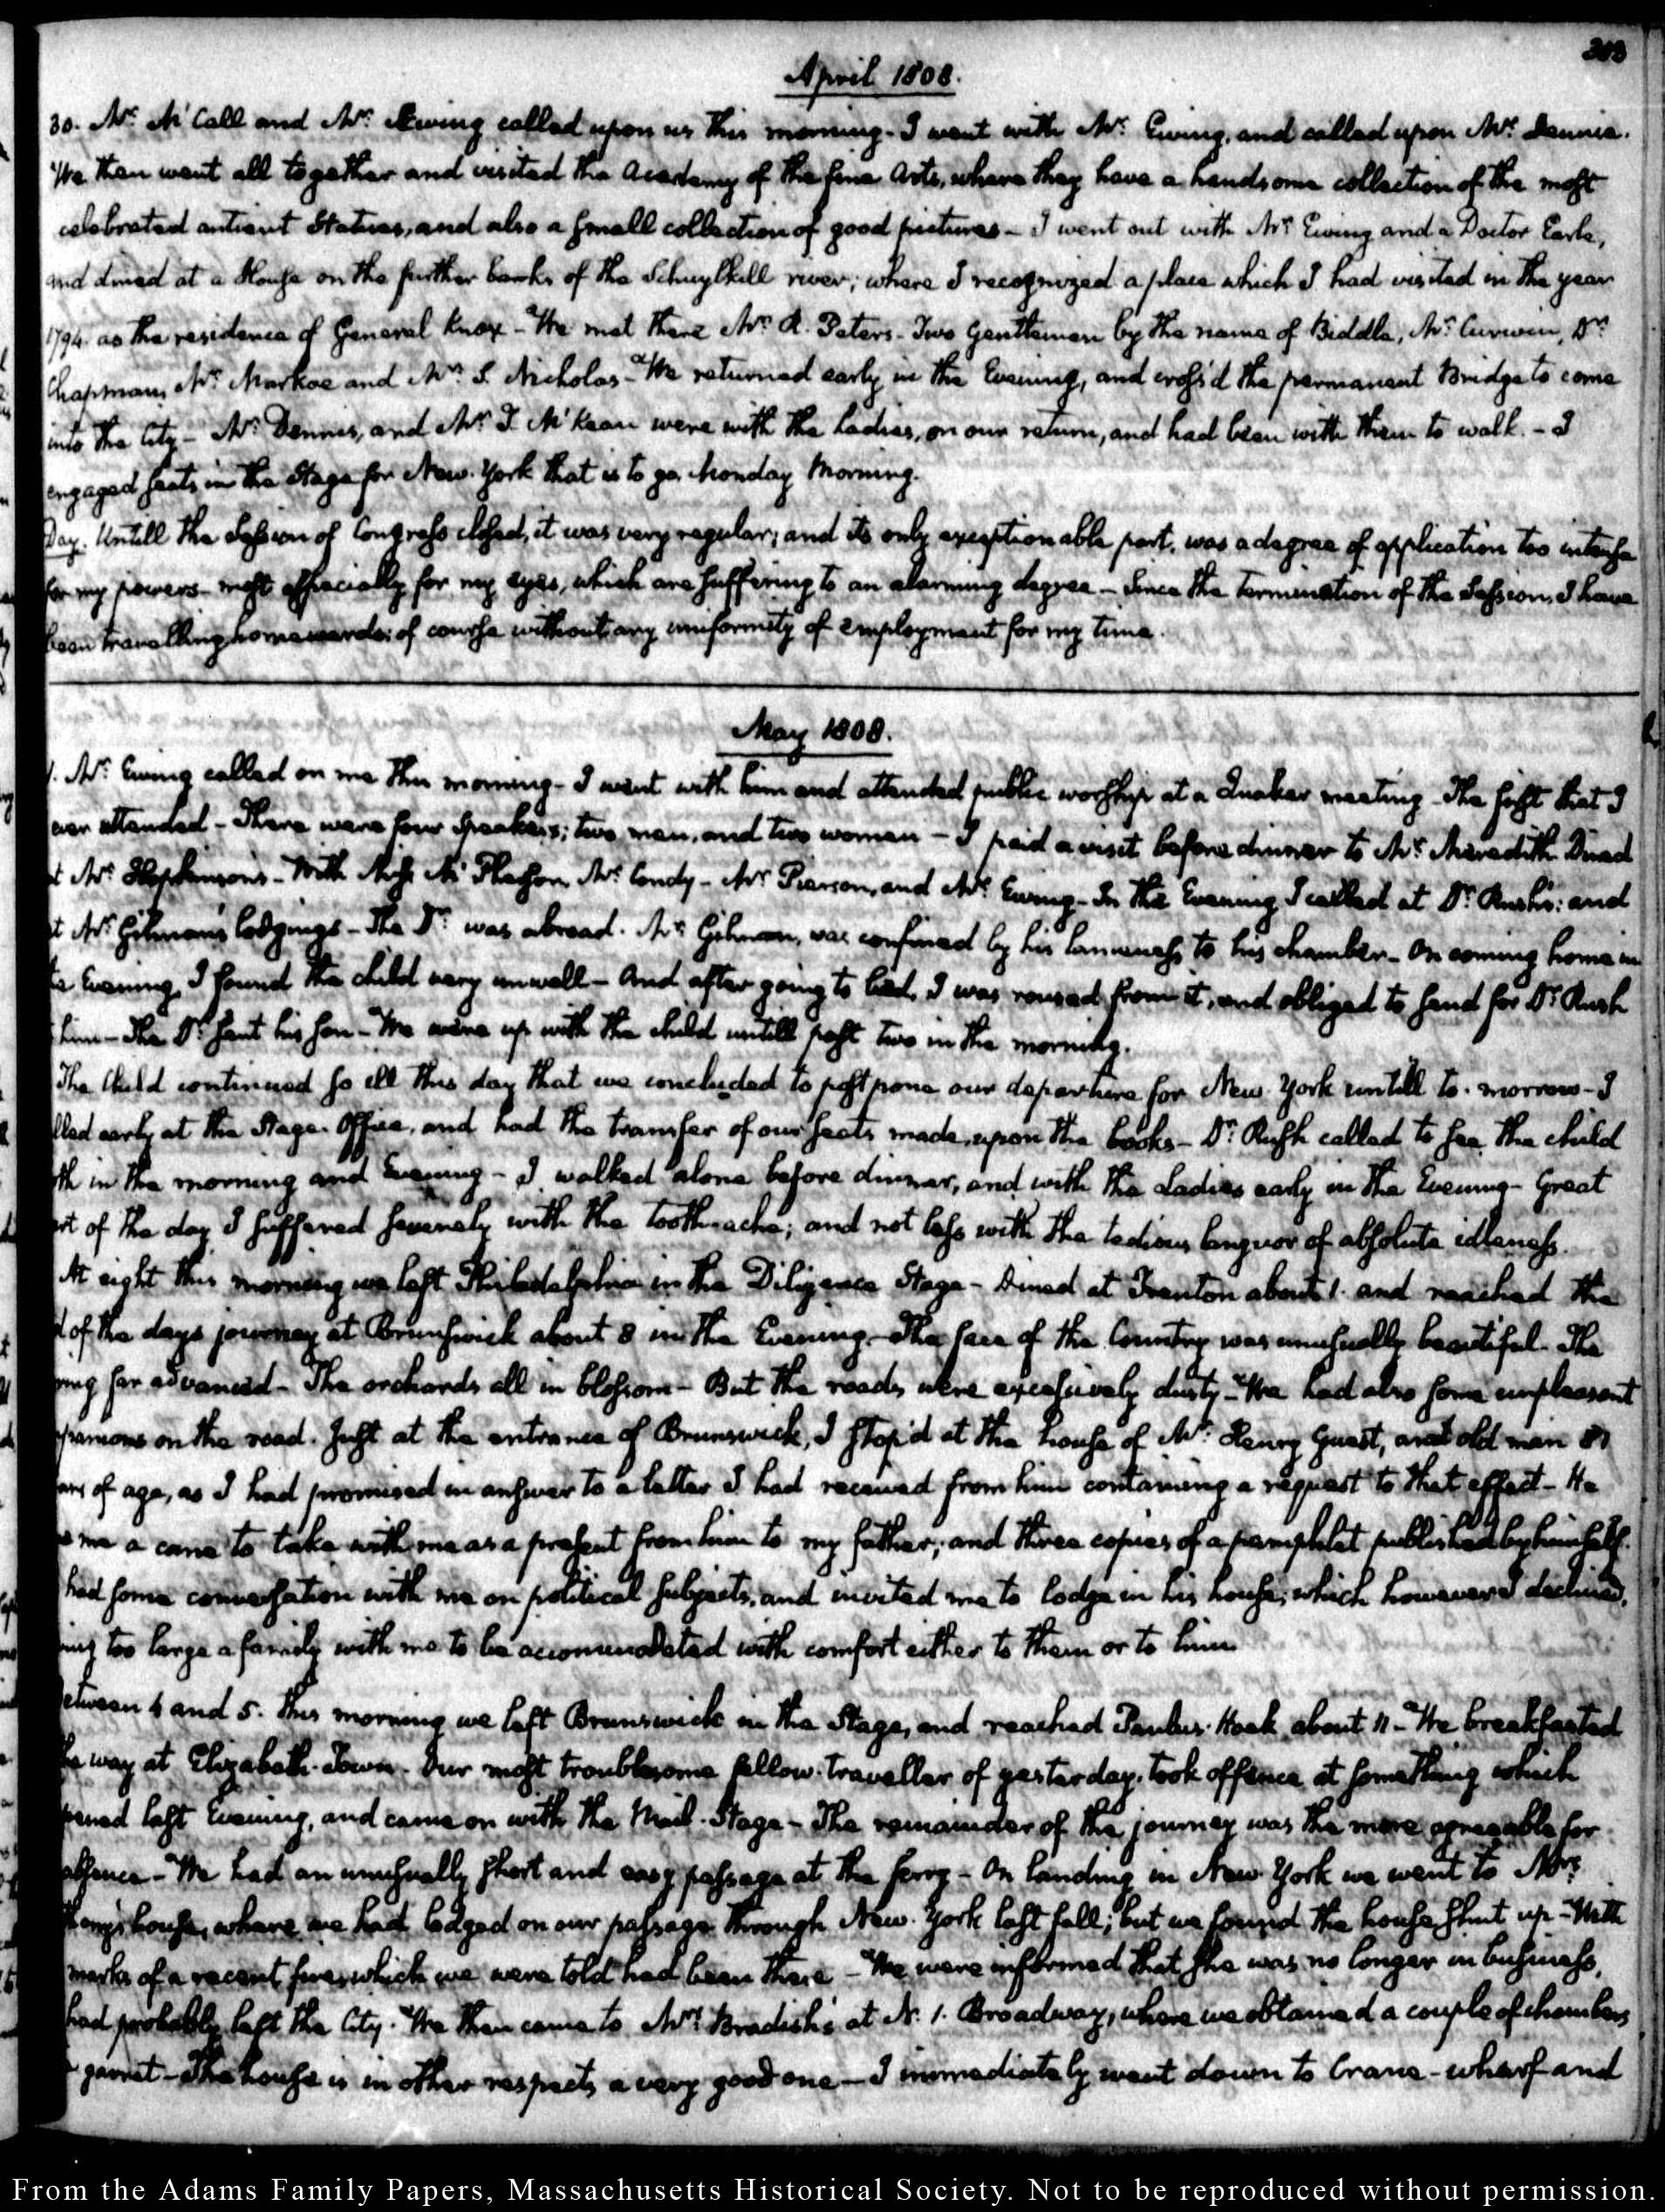 303
April 1808.
30. Mr. McCall and Mr. Ewing called upon us this morning. I went with Mr. Ewing, and called upon Mr. Dennie.
We then went all together and visited the Academy of the fine Arts, where they have a handsome collection of the most
celebrated antient Statues, and also a small collection of good pictures – I went out with Mr. Ewing and a Doctor Earle,
and dined at a House on the further banks of the Schuylkill river; where I recognized a place which I had visited in the year
1794. as the residence of General Knox – We met there Mr. R. Peters. Two Gentlemen by the name of Biddle, Mr. Curwen, Dr.
Chapman, Mr. Markoe and Mr. S. Nicholas – We returned early in the Evening, and cross'd the permanent Bridge to come
into the City – Mr. Dennie, and Mr. T. McKean were with the Ladies, on our return, and had been with them to walk. – I
engaged seats in the Stage for New-York that is to go, Monday Morning.
Day. Untill the Session of Congress closed, it was very regular; and its only exceptionable part, was a degree of application too intense
for my powers – most especially for my eyes, which are suffering to an alarming degree – Since the termination of the Session, I have
been travelling homewards; of course without any uniformity of employment for my time.
May 1808.
1. Mr. Ewing called on me this morning – I went with him and attended public worship at a Quaker meeting – The first that I
ever attended – There were four Speakers; two men, and two women – I paid a visit before dinner to Mr. Meredith. Dined
at Mr. Hopkinson's – With Mr. Condy – Mr. Pearson, and Mr. Ewing – In the Evening I called at Dr. Rush's: and
at Mr. Gilman's lodgings – The Dr. was abroad. Mr. Gilman, was confined by his lameness to his chamber – On coming home in
the Evening, I found the child very unwell – And after going to bed, I was roused from it, and obliged to send for Dr. Rush
him – The Dr. sent his son – We were up with the child untill past two in the morning.
The Child continued so ill this day that we concluded to postpone our departure for New-York untill to-morrow – I
lled early at the Stage-Office, and had the transfer of our seats made, upon the books – Dr. Rush called to see the child
th in the morning and Evening – I walked alone before dinner, and with the Ladies early in the Evening – Great
rt of the day I suffered severely with the tooth-ache; and not less with the tedious languor of absolute idleness.
At eight this morning we left Philadelphia in the Diligence Stage – Dined at Trenton about 1. and reached the
d of the days journey at Brunswick about 8 in the Evening – The face of the Country was unusually beautiful – The
ring far advanced – The orchards all in blossom – But the roads were excessively dusty – We had also some unpleasant
panions on the road. Just at the entrance of Brunswick, I stop'd at the house of Mr. Henry Guest, an old man 81
ears of age, as I had promised in answer to a letter I had received from him containing a request to that effect – He
me a cane to take with me as a present from him to my father; and three copies of a pamphlet published by himself.
had some conversation with me on political subjects, and invited me to lodge in his house; which however I declined,
ing too large a family with me to be accommodated with comfort either to them or to him
etween 4 and 5. this morning we left Brunswick in the Stage, and reached Paulus-Hook about 11 – We breakfasted
the way at Elizabeth-Town – Our most troublesome fellow-traveller of yesterday, took offence at something which
pened last Evening, and came on with the Mail-Stage – The remainder of the journey was the more agreeable for
absence – We had an unusually short and easy passage at the ferry – On landing in New-York we went to Mrs.
house, where we had lodged on our passage through New-York last fall; but we found the house shut up – With
marks of a recent fire, which we were told had been there – We were informed that she was no longer in business,
had probably left the City. We then came to Mrs. Bradish's at N. 1. Broadway, where we obtained a couple of chambers
garret – The house is in other respects a very good one – I immediately went down to Crane-wharf and
From the Adams Family Papers, Massachusetts Historical Society. Not to be reproduced without permission.